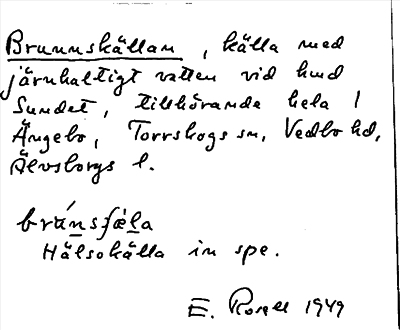 Brunnskällan, källa med
järnhaltigt vatten vid hmd
Sundet, tillhörande hela l
Ängebo, Torrskogs sn, Vedbo hd,
Älvsborgs l.
Hälsokälla in spe.
E. 1949